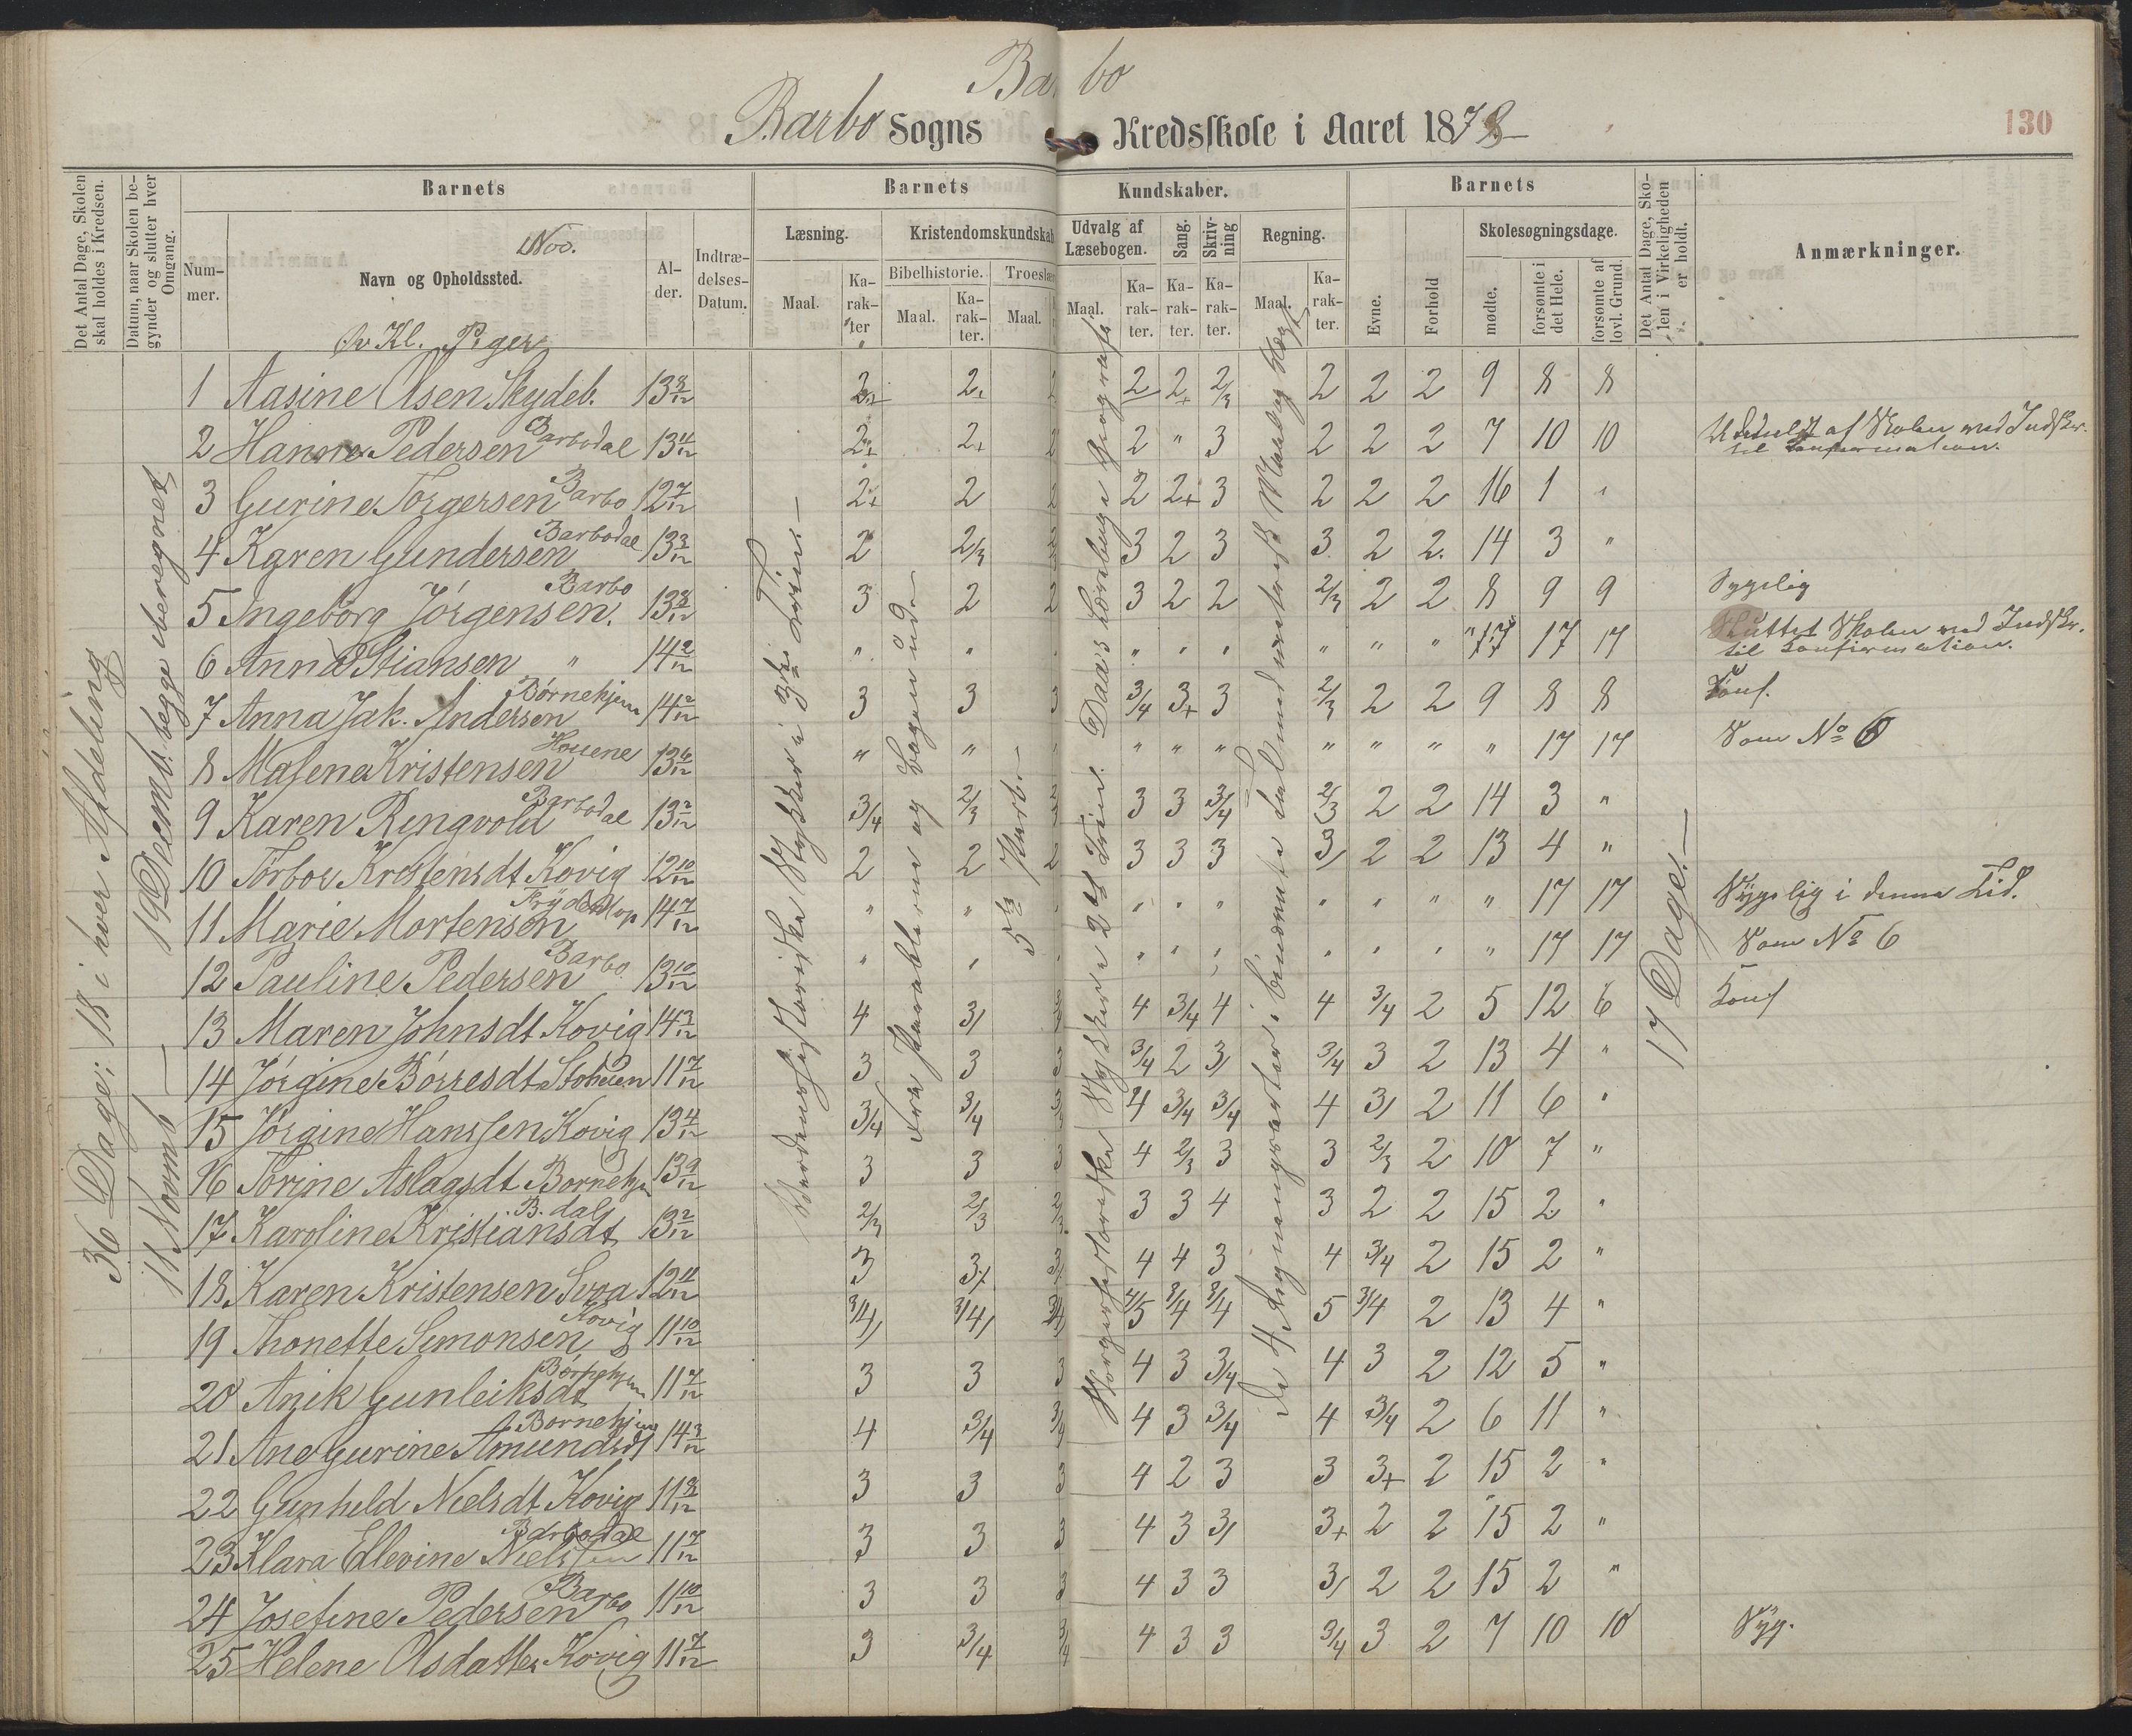 Barbo
Barbo Sogns Kredsskole i Aaret 1878
130
Det Antal Dage, Skolen skal holdes i Kredsen.
Datum, naar Skolen begynder og slutter hver Omgang.
Barnets
Nummer.
Nov.
Navn og Opholdssted.
Alder.
Indtrædelses-Datum.
Barnets Kundskaber.
Læsning.
Maal.
Karakter
Kristendomskundskab
Bibelhistorie.
Maal.
Karakter.
Troeslære
Maal.
Udvalg af Læsebogen.
Maal.
Karakter.
Sang.
Karakter.
Skrivning
Karakter.
Regning.
Maal.
Karakter.
Barnets
Evne.
Forhold
Skolesøgningsdage.
mødte.
forsømte i det Hele.
forsømte af lovl. Grund.
Det Antal Dage, Skolen i Virkeligheden er holdt.
Anmærkninger.
Kl. Piger
36 Dage; 18 i hver Afdeling
18 Novmb — 19 Decemb. begge iberegnet
Verdenshistoriske Stykker i 3die Trin.—
Fra Parablerne og Bogen ud
5te Part.—
17 Dage.—
1 Aasine Olsen Skydeb. 13 8/12 2+ 2+ 2 2+ 2/3 2 2 2 9 8 8
2 Hanna Pedersen Barbodal 13 11/12 2+ 2+ 2 " 3 2 2 2 7 10 10 Udskrevet af Skolen med Indskr. til Konfirmation.
3 Gurine Torgersen Barbo 12 7/12 2+ 2 2 2+ 3 2 2 2 16 1 "
4 Karen Gundersen Barbodal 13 3/12 2 2/3 3 2 3 3 2 2 14 3 "
5 Ingeborg Jörgensen. Barbo 13 8/12 3 2 2 3 2 2 2/3 2 2 8 9 9 Sygelig
6 Anna Stiansen " 14 2/12 " " " " " " " " 17 17 17 Sluttet Skolen med Indskr. til Konfirmation.
7 Anna Jak. Andersen Børnehjem 14 2/12 3 3 3 3/4 3+ 3 2/3 2 2 9 8 8 Konf.
8 Malene Kristensen Houene 13 6/12 " " " " " " " " " 17 17 Som No 6
9 Karen Ringvold Barbodal 13 2/12 3/4 2/3 3 3 3/4 2/3 2 2 14 3 "
10 Torbor Kristensdt Kovig 12 10/12 2 2 2 3 3 3 3/ 2 2 13 4 "
11 Marie Mortensen 14 7/12 " " " " " " " " " 17 17 Sygelig i denne Tid.
12 Pauline Pedersen Barbo 13 10/12 " " " " " " " " " 17 17 Som No 6
13 Maren Johnsdt Kovig 14 3/12 4 3/ 4 3/4 4 4 3/4 2 5 12 6 Konf
14 Jörgine Börresdt 11 7/12 3 3 3 3/4 2 3/ 3/4 3 2 13 4 "
15 Jörgine Hanssen Kovig 13 4/12 3/4 3/4 4 3/4 3/4 4 3/ 2 11 6 "
16 Torine Aslagsdt Børnehjem 13 9/12 3 3 3 4 2/3 3 3 2/3 2 10 7 "
17 Karoline Kristiansdt B.dal 13 2/12 2/3 2/3 2/3 3 3 4 3 2 2 15 2 "
18 Karen Kristensen Svoa 12 11/12 3 3+ 4 4 3 4 3/4 2 15 2 "
19 Thonette Simonsen Kovig 11 10/12 3/4/ 3/4/ 4/5 3/4 3/4 5 3/4 2 13 4 "
20 Anik Gunleiksdt Børnehjem 11 7/12 3 3 3 4 3 3/4 4 3 2 12 5 "
21 Ane Gurine Amundsdt Børnehjem 14 3/12 4 3/4 3/4 4 3 3/4 4 3/4 2 6 11 "
22 Gunhild Nielsdt Kovig 11 8/12 3 3 3 4 2 3 3 3+ 2 15 2 "
23 Klara Ellevine Nielssen Barbodal 11 7/12 3 3 3 4 3 3/ 3+ 2 2 15 2 "
24 Josefine Pedersen Barbo 11 10/12 3 3 3 4 3 3 3/ 2 2 15 2 "
25 Helene Olsdatter Kovig 11 7/12 3 3/4 3/4 4 3 3 3/4 3 2 7 10 10 Syg.